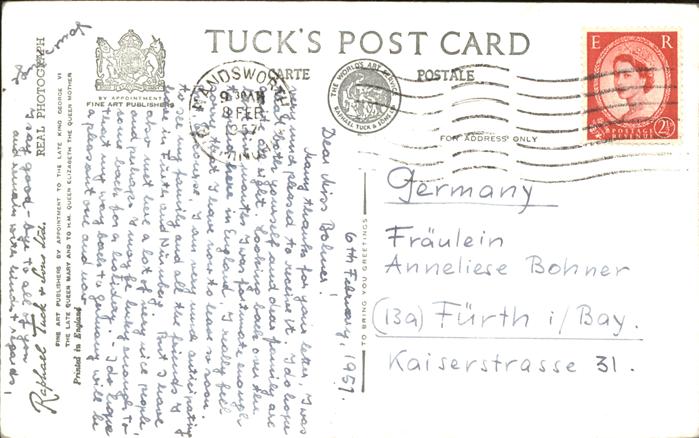 TUCK'S POST CARD
CARTE POSTALE
BY APPOINTMENT
FINE ART PUBLISHERS
THE WORLD'S ART SERVICE
RAPHAEL TUCK & SONS LTD
FOR ADDRESS ONLY
E R
POSTAGE
2½
WANDSWORTH
9 30 AM
8 FEB
1957
REAL PHOTOGRAPH
Raphael Tuck & Sons Ltd.
FINE ART PUBLISHERS BY APPOINTMENT TO THE LATE KING GEORGE VI
THE LATE QUEEN MARY AND TO H.M. QUEEN ELIZABETH THE QUEEN MOTHER
Printed in England
TO BRING YOU GREETINGS
6th February, 1957.
Dear Miss Bohner!
Many thanks for your letter, I was
very much pleased to receive it. I do hope
that both yourself and dear family are
all right. Looking back on the
months I was fortunate enough
to spend here in England, I really feel
sorry that I have now to leave so soon.
Of course, I am very much anticipating
to see my family and all the friends of
here in Fürth and Nürnberg. But I have
also met here a lot of very nice people,
and perhaps I may be lucky enough to
come back for a holiday. - I do hope
that my way back to Germany will be
a pleasant one and now
I say good-bye to all of you
and remain with kindest regards,
Germany
Fräulein
Anneliese Bohner
(13a) Fürth i/Bay.
Kaiserstrasse 31.